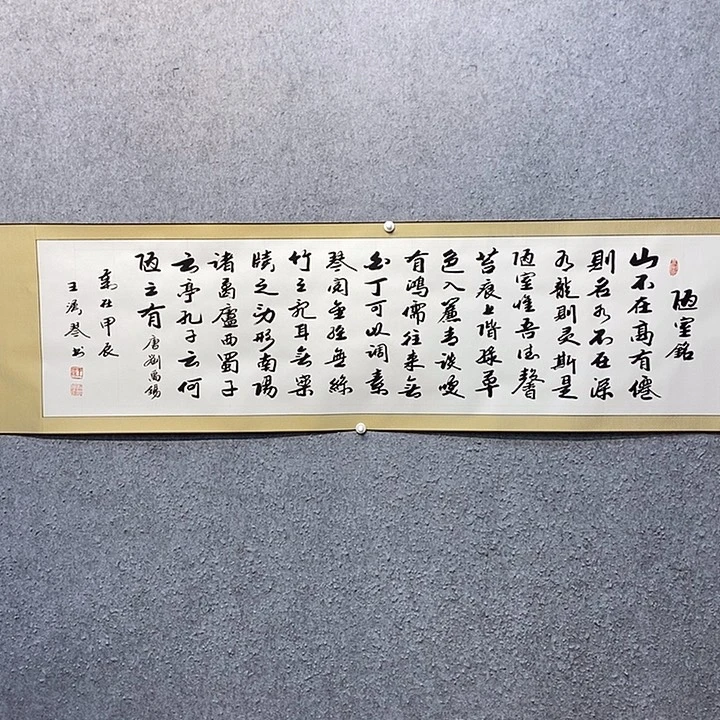 陋室銘
山不在高有僊
則名水不在深
有龍則灵斯是
陋室惟吾德馨
苔痕上階緑草
色入簾青談咲
有鴻儒往来無
白丁可以调素
琴閲金經無絲
竹之乱耳無案
牘之勞形南陽
諸葛廬西蜀子
云亭孔子云何
陋之有 唐劉禹錫
歲在甲辰
王 琴书